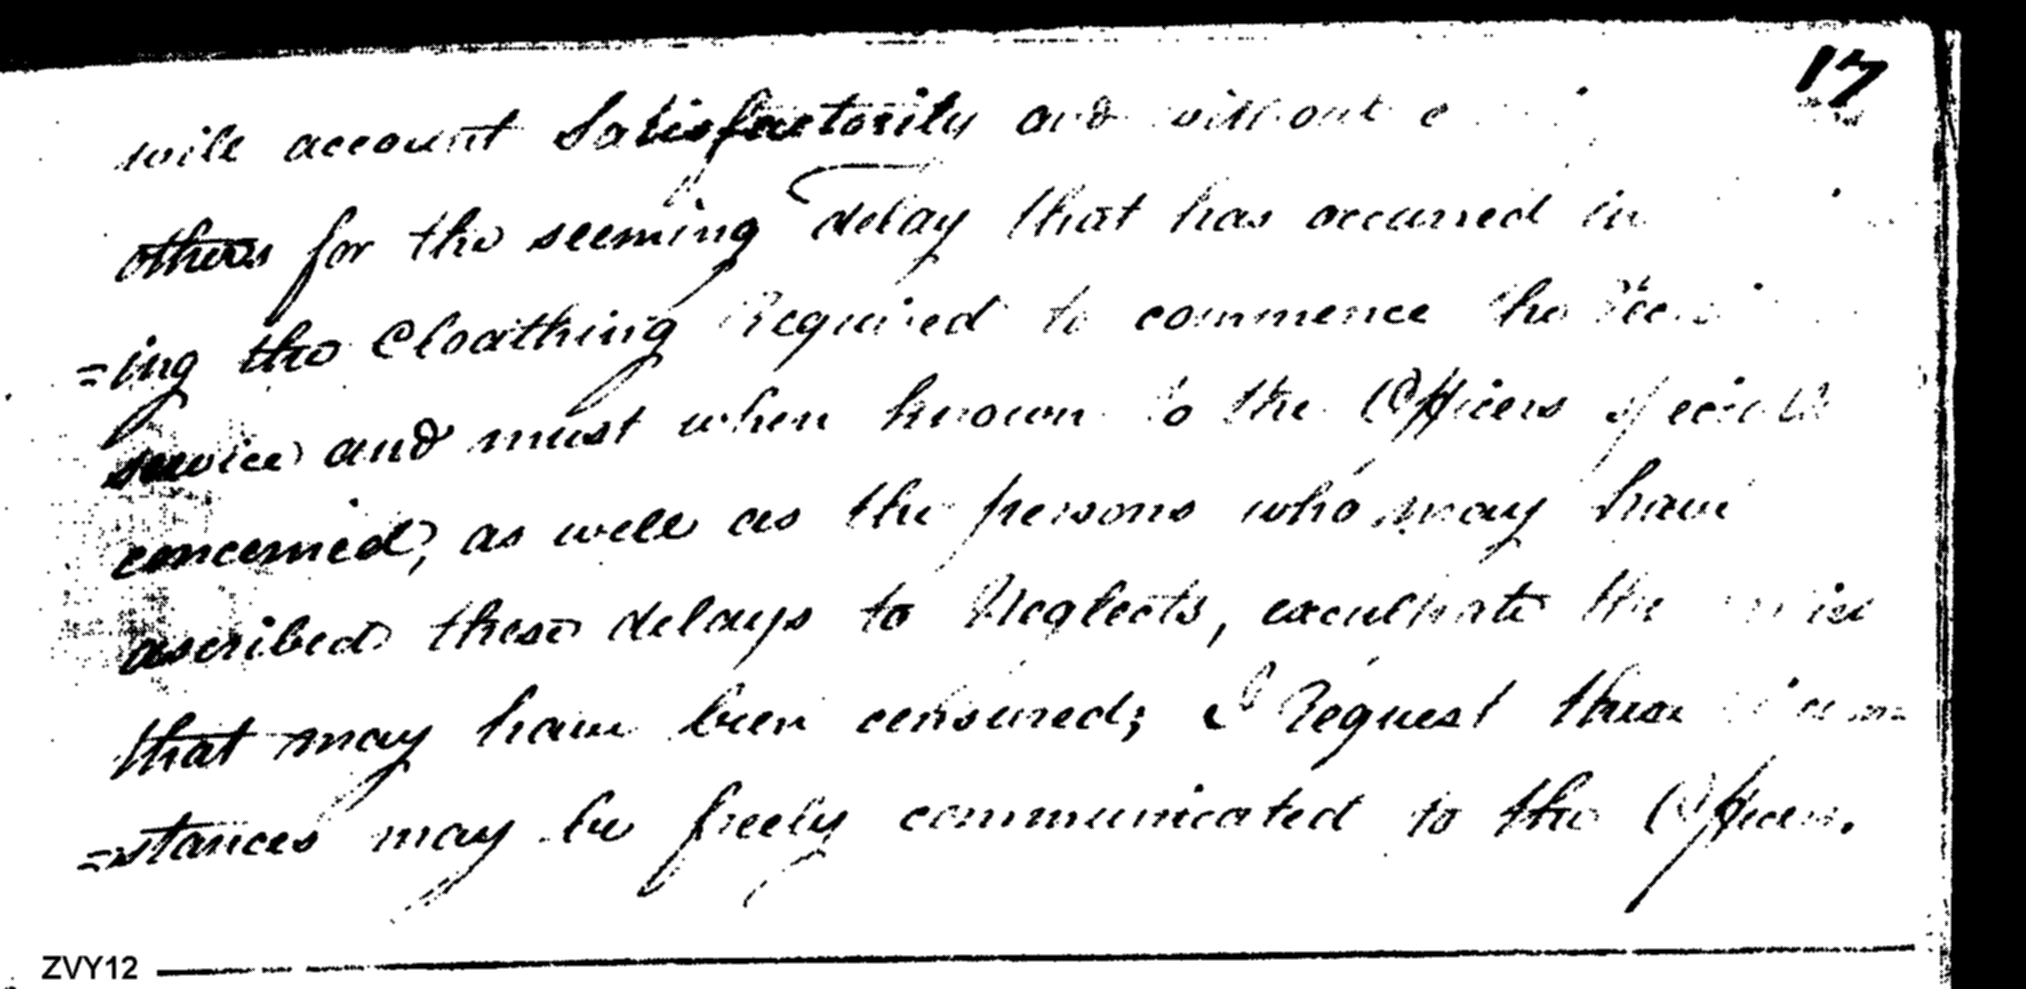 17
will account Satisfactorily and without
others for the seeming delay that has occurred in
=ing the Cloathing Required to commence the
service and must when known to the Officers specially
concerned, as well as the persons who may have
ascribed these delays to Neglects, exculpate the
that may have been censured; I Request these
=stances may be freely communicated to the Officers.
ZVY12